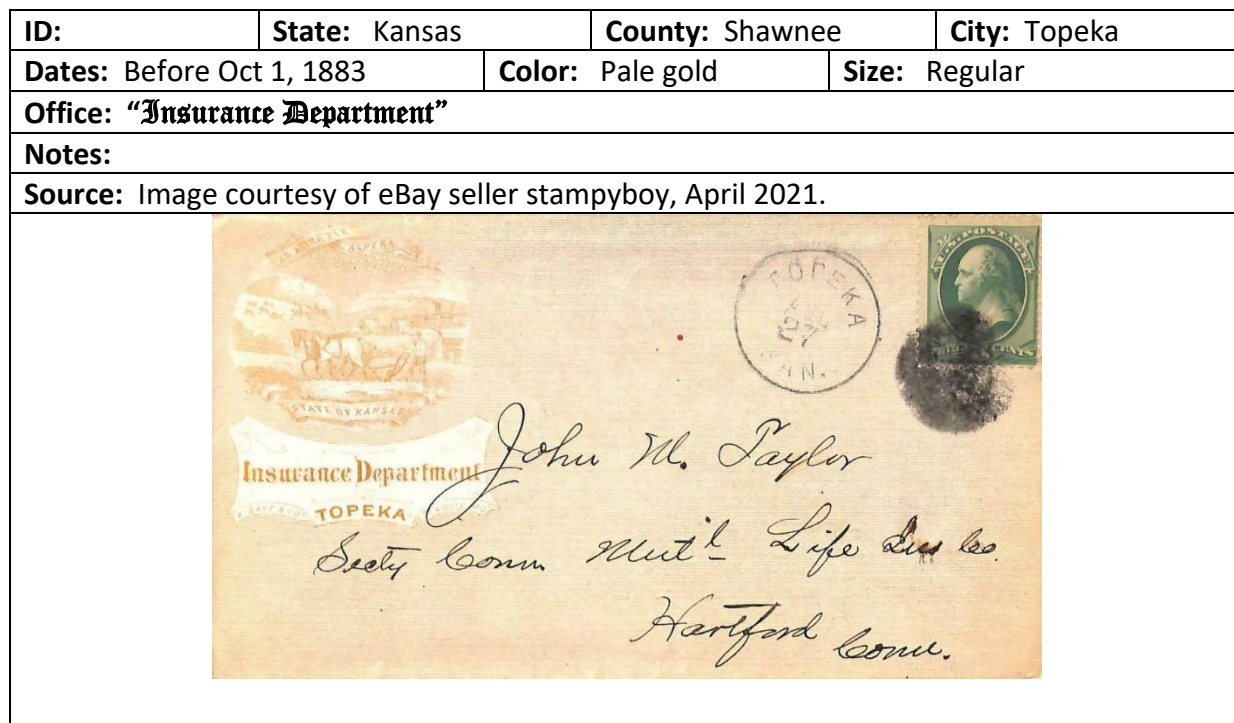 ID: State: Kansas County: Shawnee City: Topeka
Dates: Before Oct 1, 1883 Color: Pale gold Size: Regular
Office: “Insurance Department”
Notes:
Source: Image courtesy of eBay seller stampyboy, April 2021.
AD ASTRA PER ASPERA
STATE OF KANSAS
Insurance Department
TOPEKA
TOPEKA
KAN.
U.S. POSTAGE
CENTS
John M. Taylor
Secty Conn Mut'l Life Ins Co.
Hartford Conn.